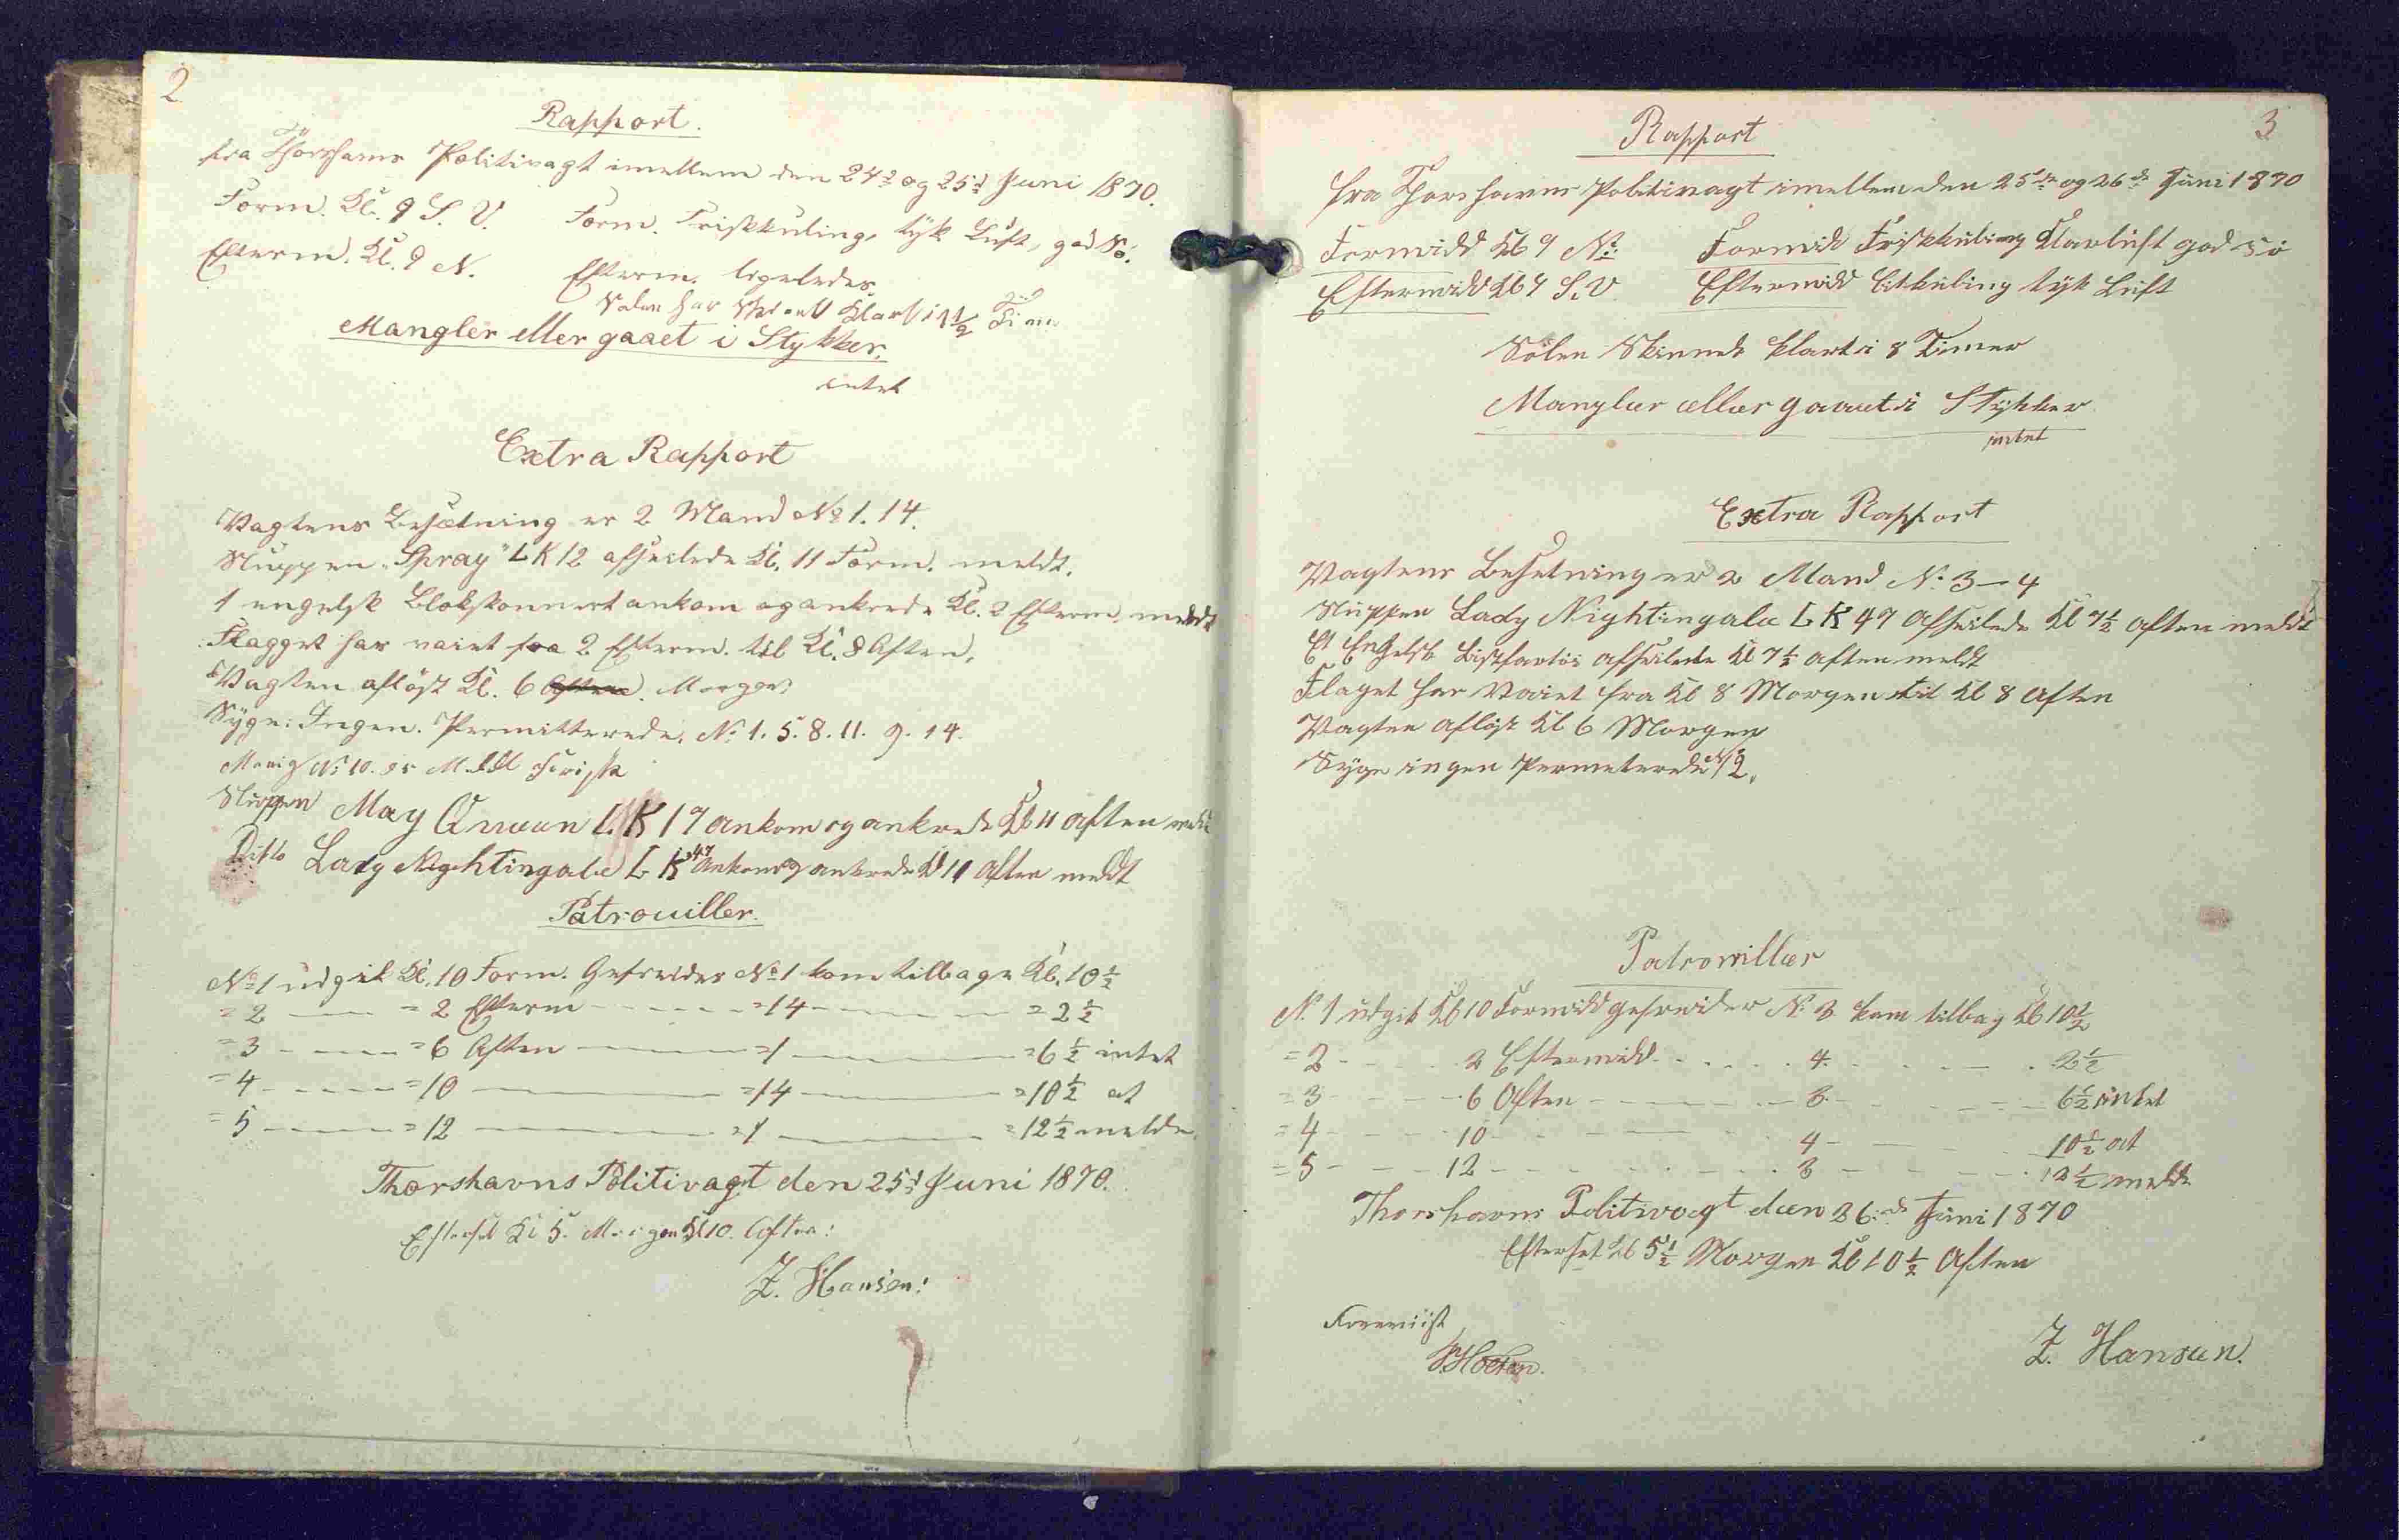 2
Rapport.
fra Thorshavns Politivagt imellem den 24de og 25d Juni 1870.
Form. Kl. 9 S. V. Form. Friskkuling, tyk Luft, god Sø.
Efterm. Kl. 9 N. Efterm. ligeledes
Solen har klart i 1 1/2 Time
Mangler eller gaaet i Stykker.
intet
Extra Rapport
Vagtens Besætning er 2 Mand No 1. 14.
Sluppen "Spray" LK 12 afseilede Kl. 11 Form. meldt.
1 engelsk Blokskonnert ankom og ankrede Kl. 2 Efterm. meldt
Flagget har vaiet fra 2 Efterm. til Kl. 8 Aften.
Vagten afløst Kl. 6 Aften. Morgen
Syge: Ingen. Permitterede. No 1. 5. 8. 11. 9. 14.
No 10.
Sluppen May Queen LK 19 ankom og ankrede Kl 11 Aften meldt
Ditto Lady Nightingale LK 47 Ankom og ankrede Kl 11 Aften meldt
Patrouiller.
No 1 udgik Kl. 10 Form. Gefreider No 1 kom tilbage Kl. 10 1/2
= 2 — = 2 Efterm — = 14 — = 2 1/2
= 3 — = 6 Aften — = 1 — = 6 1/2 intet
= 4 — = 10 — = 14 — = 10 1/2 at
= 5 — = 12 — = 1 — = 12 1/2 melde.
Thorshavns Politivagt den 25d Juni 1870.
Efterset Kl 5. Morgen Kl 10. Aften:
Z. Hansen:
3
Rapport
fra Thorshavns Politivagt imellem den 25de og 26de Juni 1870
Formidd Kl 9 N. Formidd Friskkuling Klarluft god Sø
Eftermidd Kl 9 S.V. Eftermidd Litkuling tyk Luft
Solen Skinnede klart i 8 Timer
Mangler eller gaaet i Stykker
intet
Extra Rapport
Vagtens Besetning er 2 Mand No 3 — 4
Sluppen Lady Nightingale LK 47 Afseilede Kl 7 1/2 Aften meldt
Et Engelsk afseilede Kl 7 1/2 aften meldt
Flaget har Vaiet fra Kl 8 Morgen til Kl 8 Aften
Vagten afløst Kl 6 Morgen
Syge ingen Permeterede No 2.
Patrouiller
No 1 udgik Kl 10 Formidd gefreider No 3 kom tilbag Kl 10 1/2
= 2 - - 2 Eftermidd - - 4 - - 2 1/2
= 3 - - 6 Aften - - 3 - - 6 1/2 intet
= 4 - - 10 - - 4 - - 10 1/2 at
= 5 - - 12 - - 3 - - 12 1/2 melde
Thorshavns Politivagt den 26de Juni 1870
Efterset Kl 5 1/2 Morgen Kl 10 1/2 Aften
Foreviist
Z. Hansen.